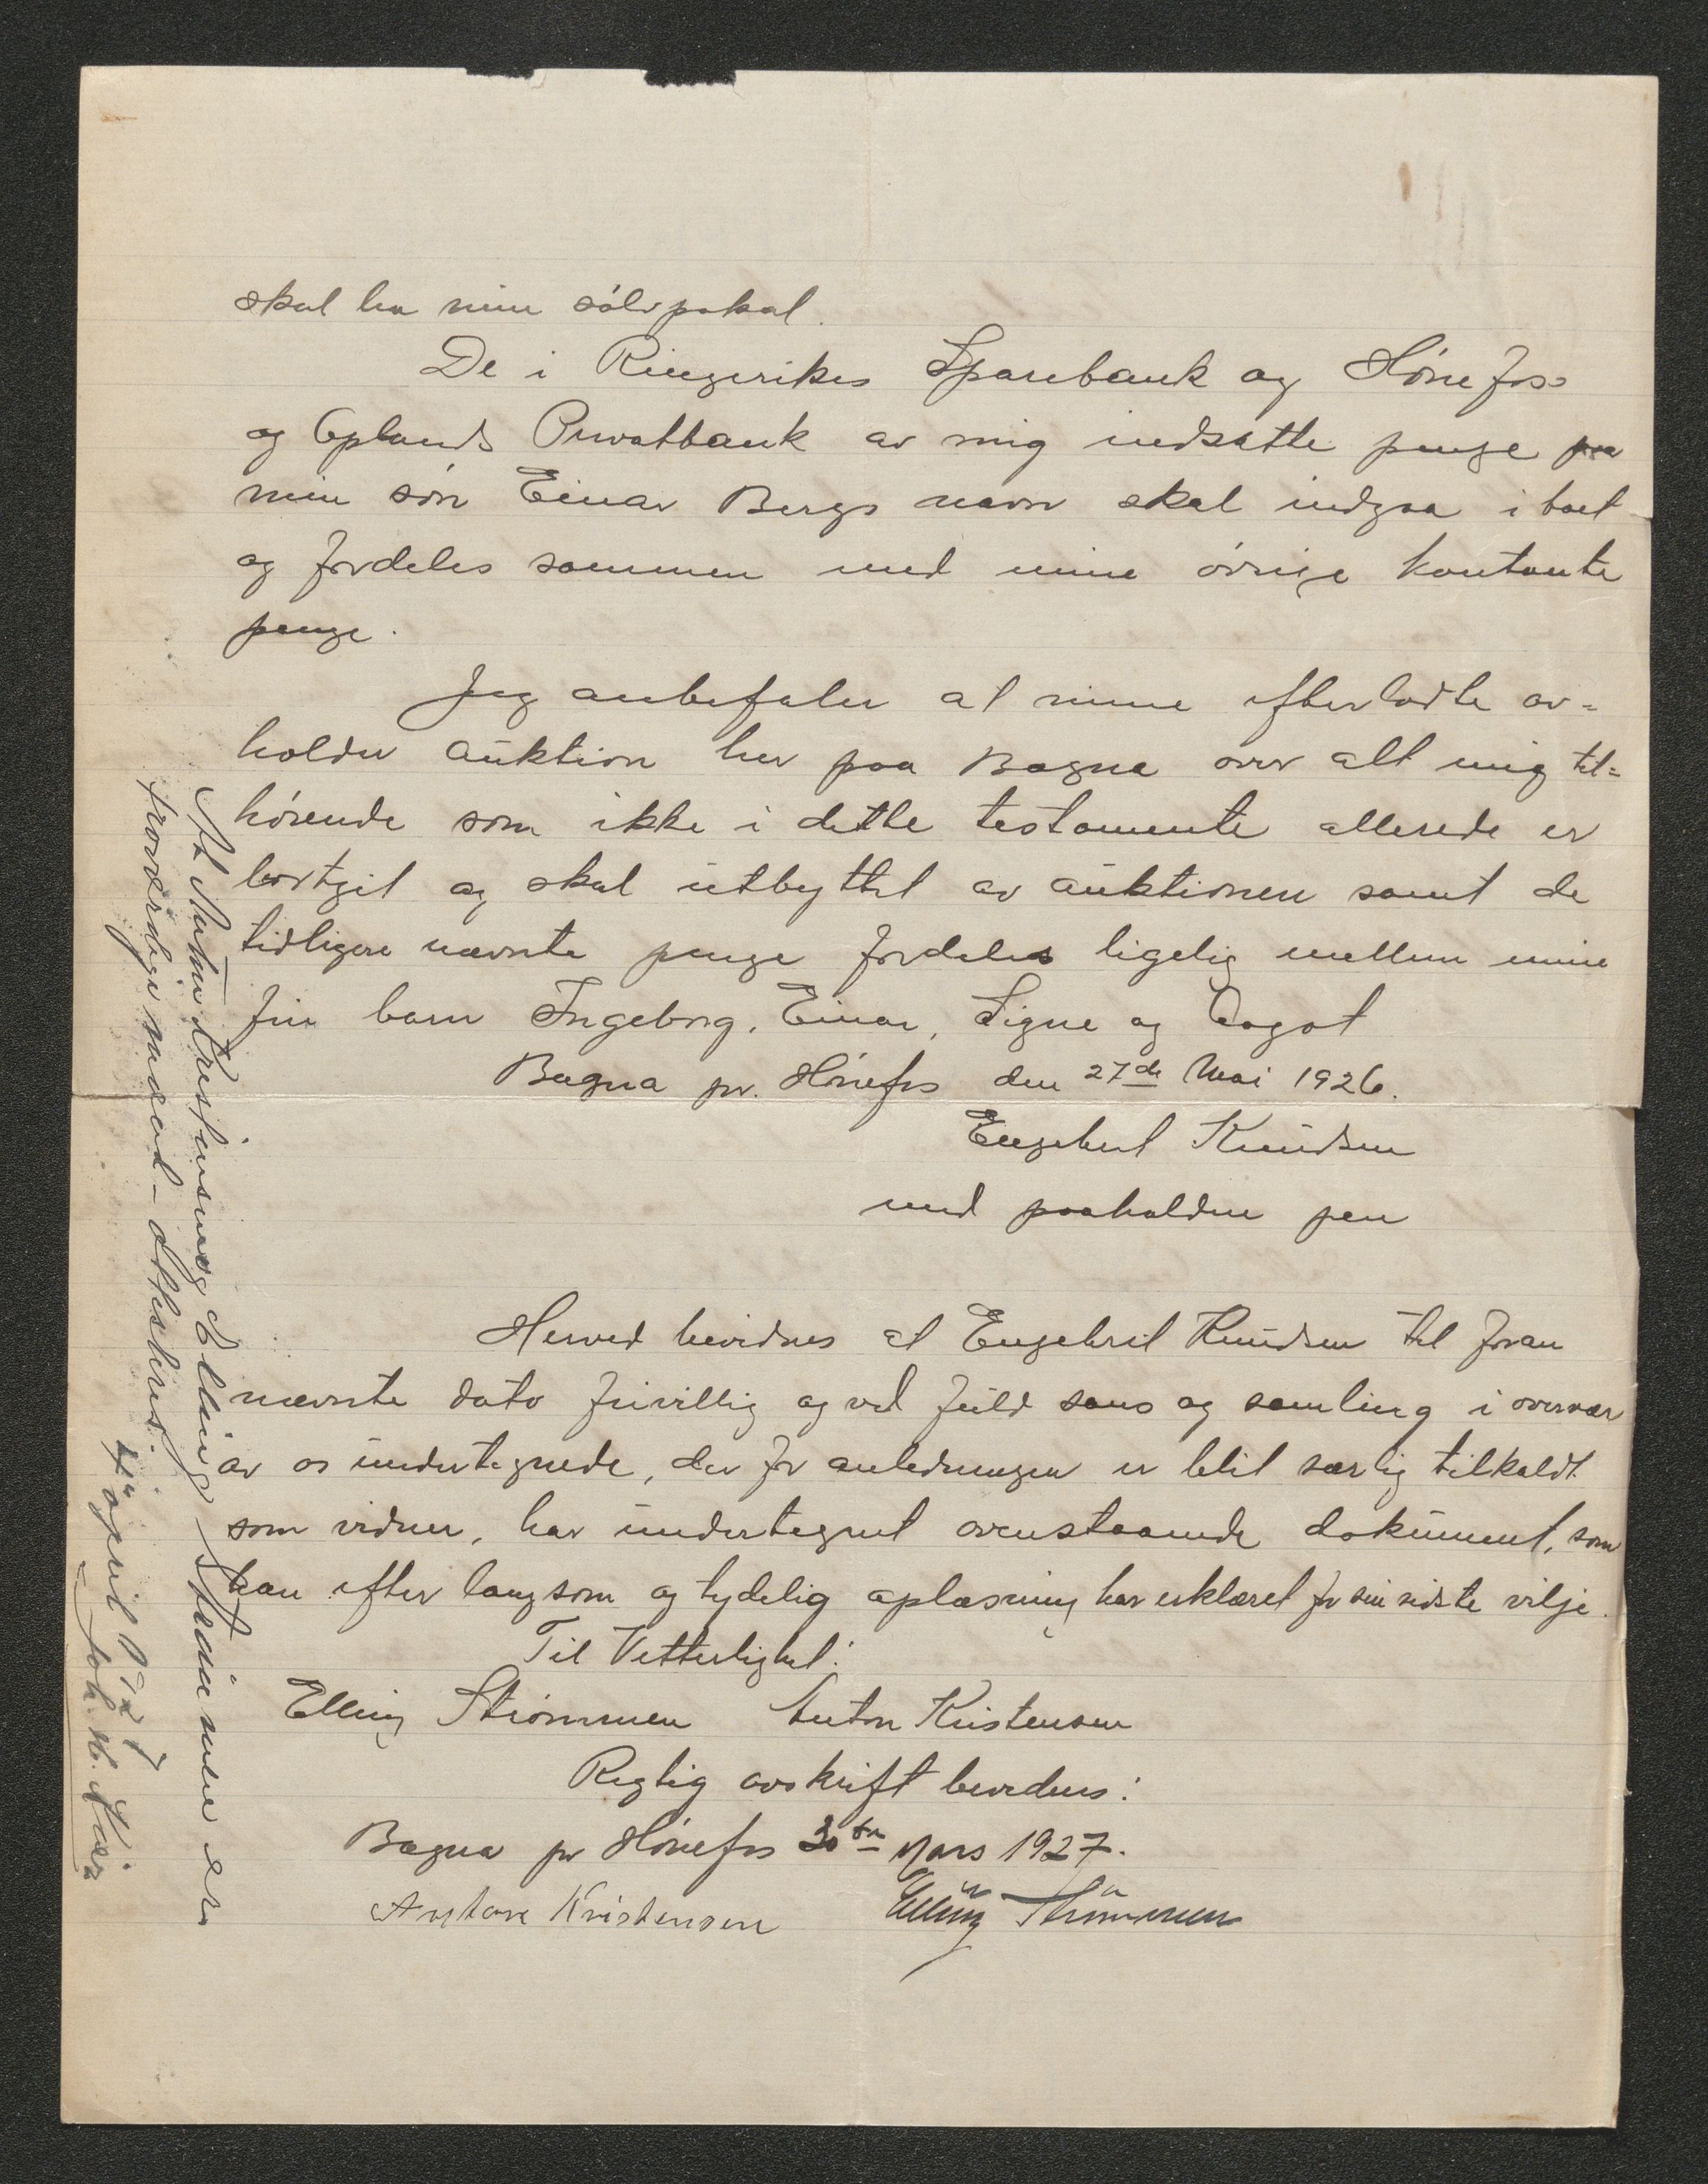 skal ha min sölvpokal.
De i Ringerikes Sparebank og Hönefos
og Oplands Privatbank av mig indsatte penge paa
min sön Einar Bergs navn skal indgaa i boet
og fordeles sammen med mine övrige kontante
penge.
Jeg anbefaler at mine efterladte av=
holder auktion her paa Bægna over alt mig til=
hörende som ikke i dette testamente allerede er
bortgit og skal utbyttet av auktionen samt de
tidligere nævnte penge fordeles ligelig mellem mine
fire barn Ingeborg, Einar, Signe og Aagot
Bægna pr. Hönefos den 27de Mai 1926.
Engebret Knudsen
med paaholden pen
Herved bevidnes at Engebret Knudsen til foran
nævnte dato frivillig og ved fuld sans og samling i overvær
av os undertegnede, der for anledningen er blit særlig tilkaldt
som vidner, har undertegnet ovenstaaende dokument, som
han efter langsom og tydelig oplæsning har erklæret for sin sidste vilje.
Til Vitterlighet:
Elling Strömmen Anton Kristensen
Rigtig avskrift bevidnes:
Bægna pr Hönefos 30te Mars 1927.
Anton Kristensen Elling Strömmen
At Anton Kristensen og Elling Strömmen er
troværdige mænd - attesteres.
4 april 1927
Joh. H.